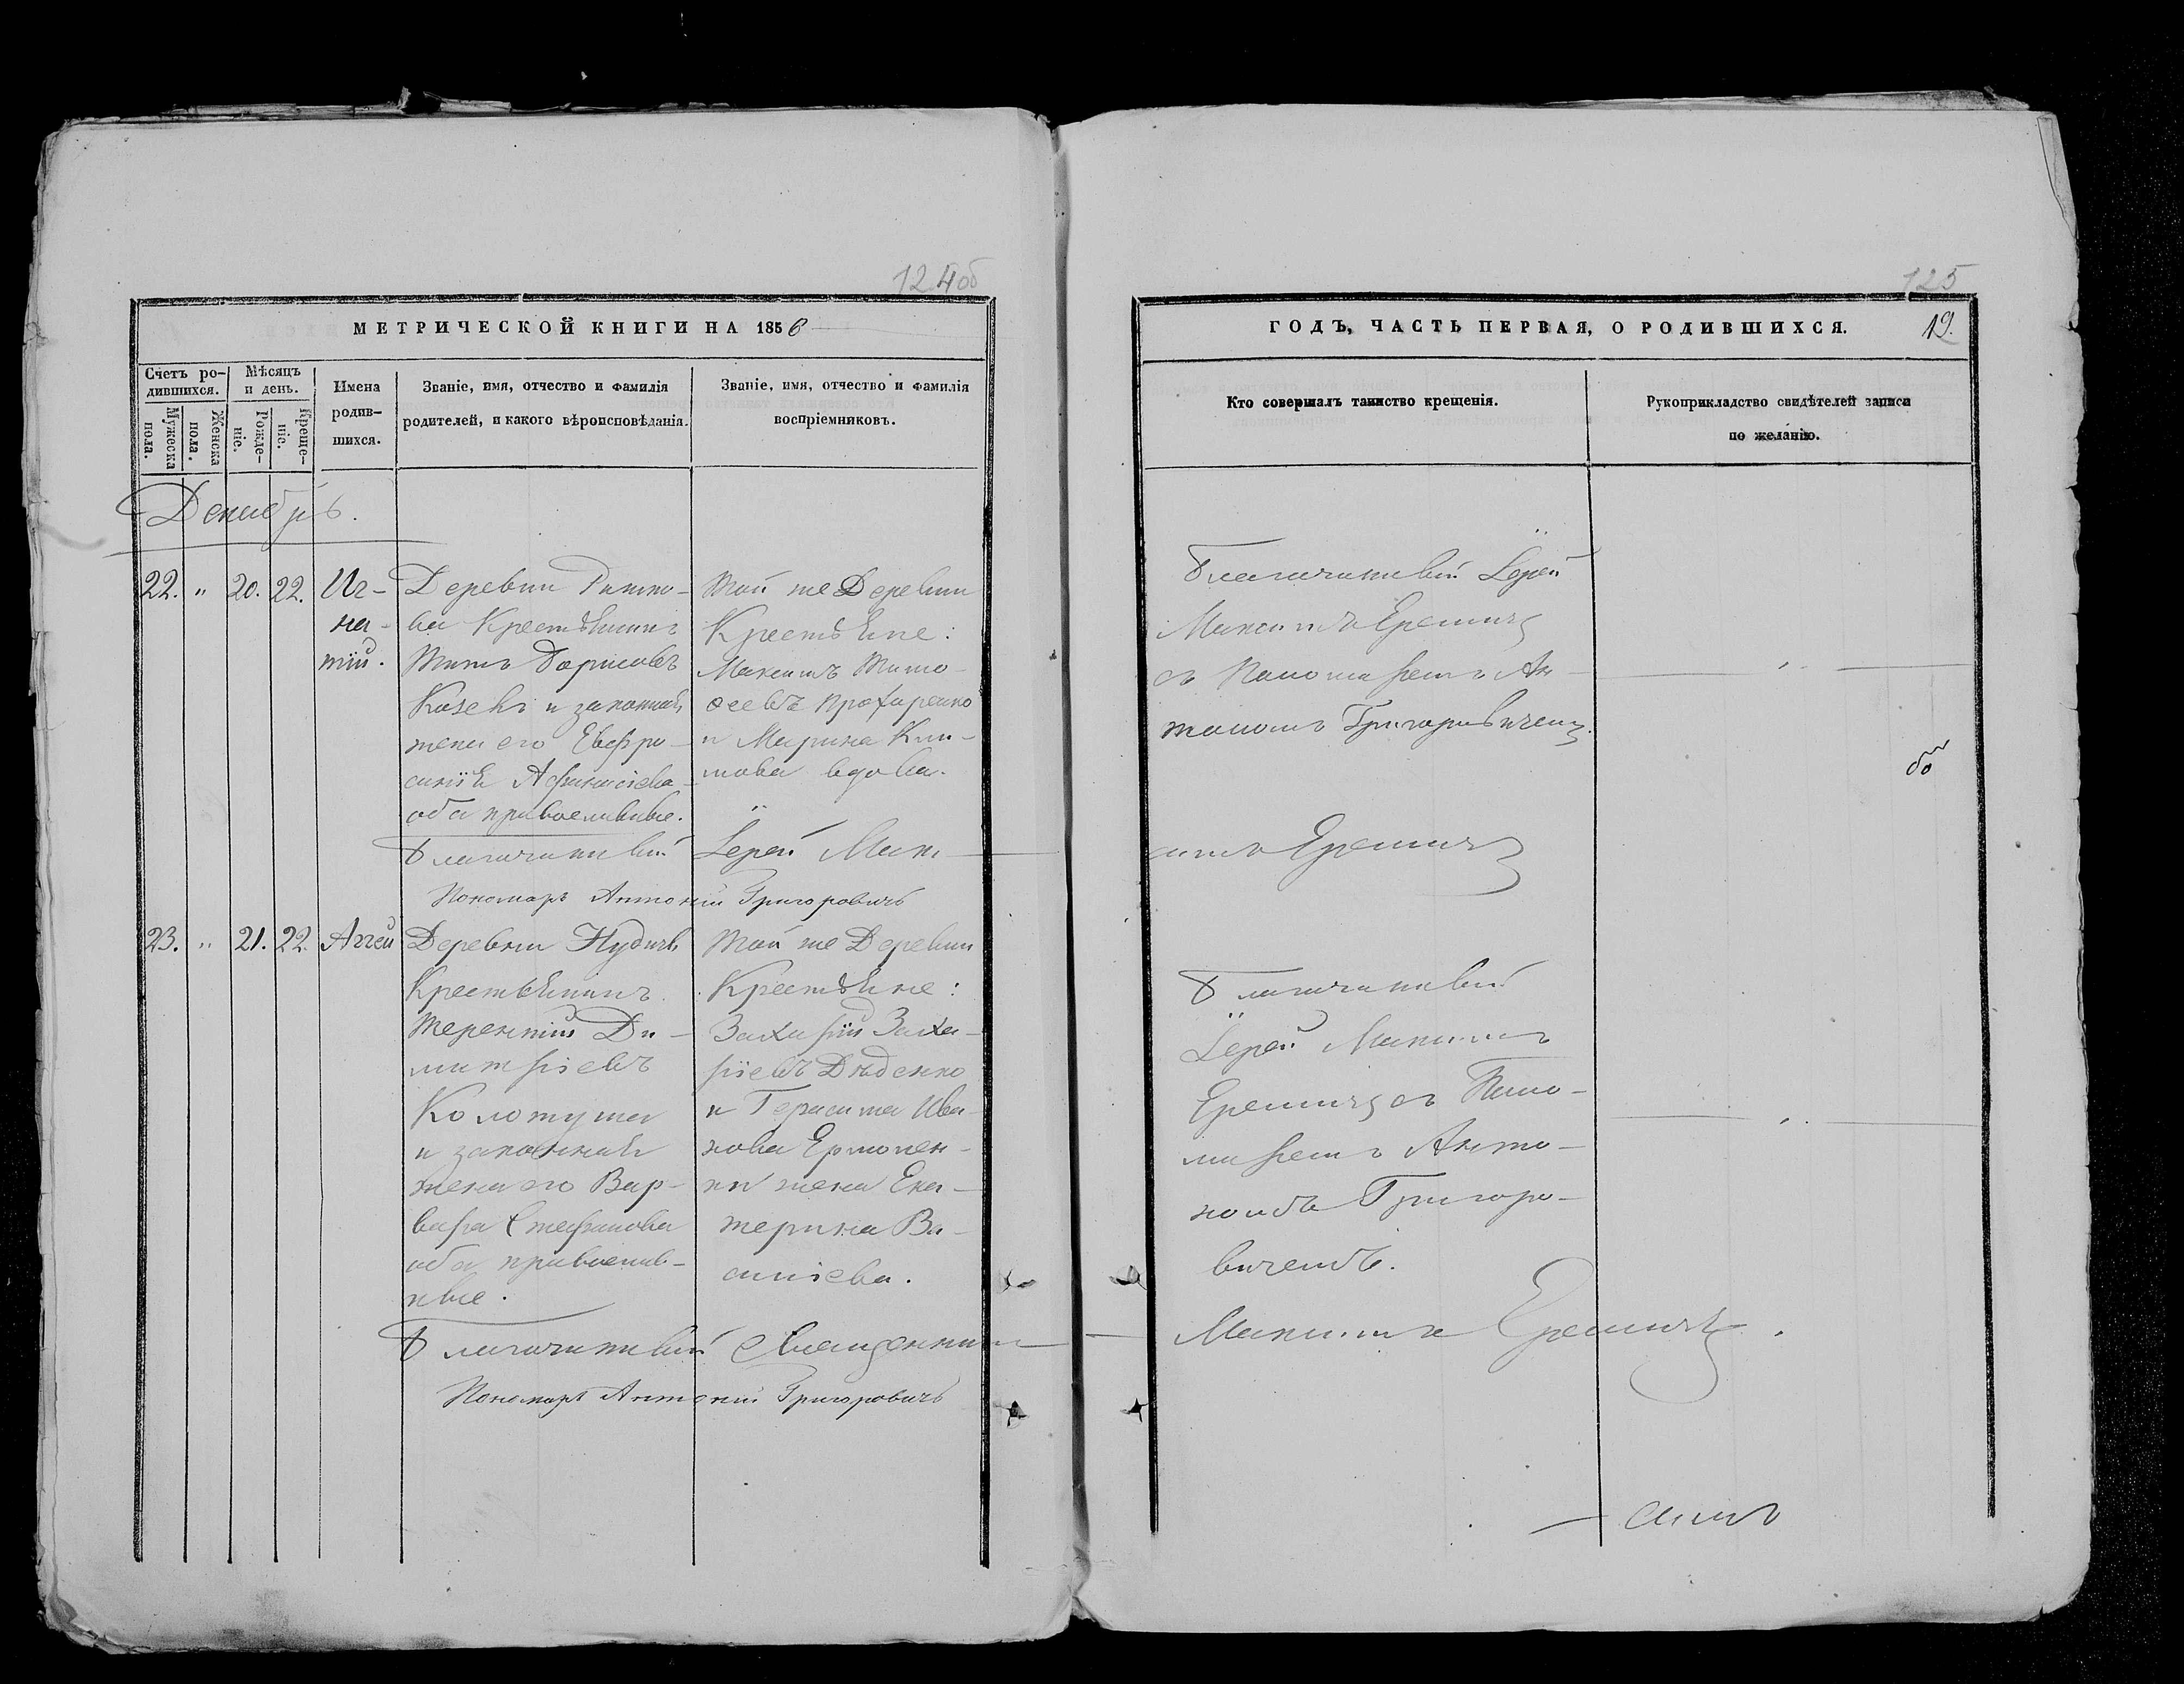 124об
МЕТРИЧЕСКОЙ КНИГИ НА 1856
Счетъ ро-
дившихся.
Мѣсяцъ
и день.
Мужеска
пола.
Женска
пола.
Рожде-
ніе.
Креще-
ніе.
Имена
родив-
шихся.
Званіе, имя, отчество и фамилія
родителей, и какого вѣроисповѣданія.
Званіе, имя, отчество и фамилія
воспріемниковъ.
Декабрь.
22. " 20. 22. Иг-
на-
тій.
Деревни
ва Крестьянинъ
Титъ Борисовъ
Казекъ и законная
жена его Евфро-
синія Афанасіева
оба православные.
Той же Деревни
Крестьяне:
Максимъ Тимо-
ѳеевъ Прохаренко
и Марина Кли-
мова вдова.
Благочинный Іерей Мак-
Пономарь Антоній Григоровичъ
23. " 21. 22. Аггей
Деревни Нудичъ
Крестьянинъ
Терентій Ди-
митріевъ
Колотуша
и законная
жена его Вар-
вара Стефанова
оба православ-
ные.
Той же Деревни
Крестьяне:
Захарій Заха-
ріевъ Дѣденко
и Герасима Ива-
нова Ермолен-
ки жена Ека-
терина Ва-
силіева.
Благочинный Священник
Пономарь Антоній Григоровичъ
125
ГОДЪ, ЧАСТЬ ПЕРВАЯ, О РОДИВШИХСЯ.
19.
Кто совершалъ таинство крещенія.
Рукоприкладство свидѣтелей записи
по желанію.
Благочинный Іерей
Максимъ Еремичъ
съ Пономаремъ Ан-
тономъ Григоровичемъ.
симъ Еремичъ
Благочинный
Іерей Максимъ
Еремичъ съ Поно-
маремъ Анто-
номъ Григоро-
вичемъ.
Максимъ Еремичъ.